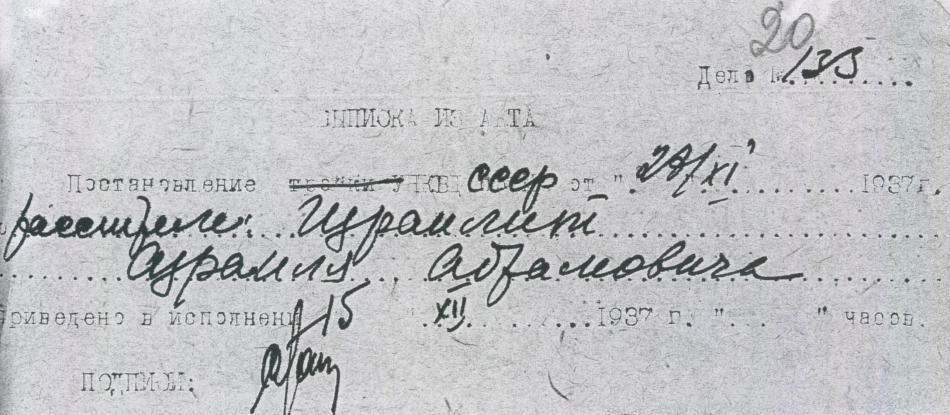 20
Дело № 133
ВЫПИСКА ИЗ АКТА
Постановление тройки УНКВД СССР от "29/XI" 1937г.
расстреле:
Абрамовича
приведено в исполнени 15 " XII 1937 г. " " часов.
ПОДПИСИ: